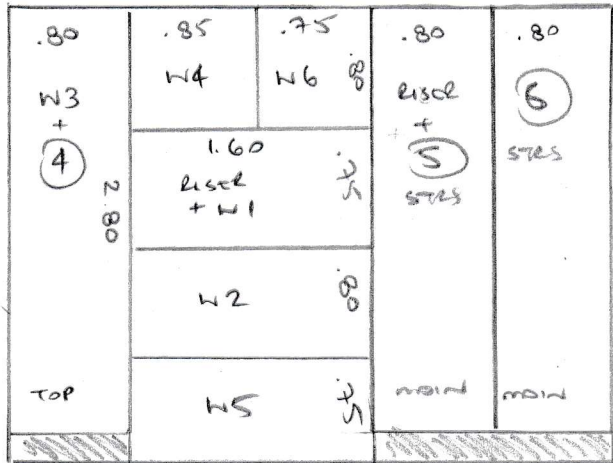 .80
W3
+
4
2.80
TOP
.85
W4
.75
W6
.80
1.60
RISER
+ W1
.75
W2
.80
W5
.75
.80
RISER
+
5
STRS
MAIN
.80
6
STRS
MAIN